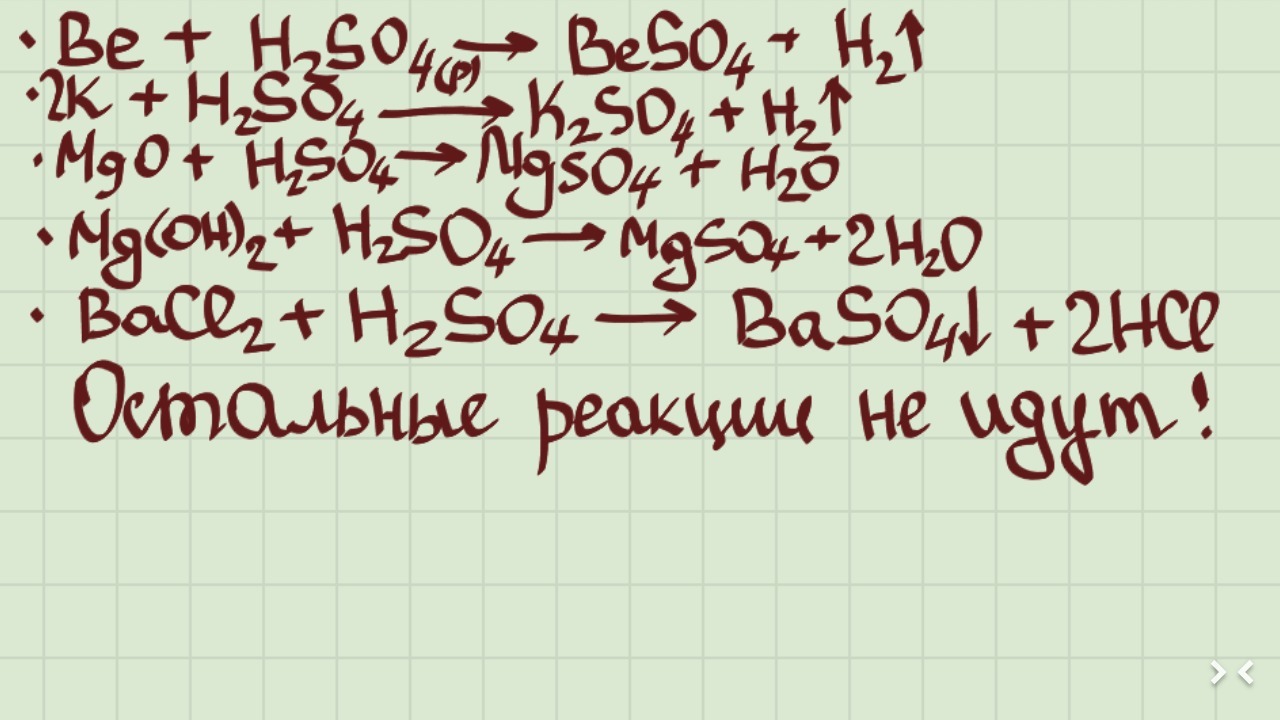 · Be + H₂SO₄(р) → BeSO₄ + H₂↑
· 2K + H₂SO₄ → K₂SO₄ + H₂↑
· MgO + H₂SO₄ → MgSO₄ + H₂O
· Mg(OH)₂ + H₂SO₄ → MgSO₄ + 2H₂O
· BaCl₂ + H₂SO₄ → BaSO₄↓ + 2HCl
Остальные реакции не идут!